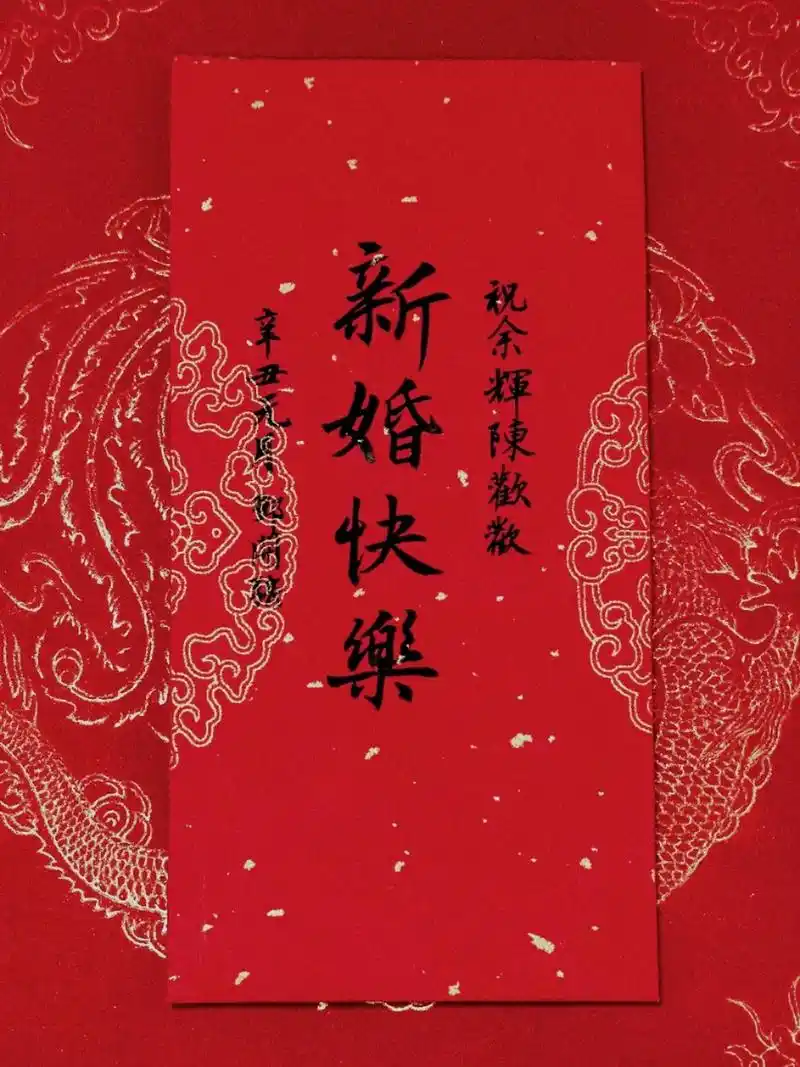 祝余輝陳歡歡
新婚快樂
辛丑元月